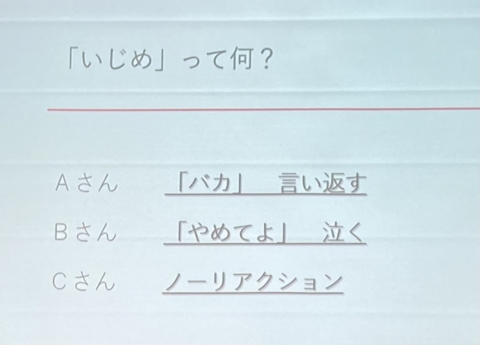 「いじめ」って何？
Aさん　「バカ」　言い返す
Bさん　「やめてよ」　泣く
Cさん　ノーリアクション